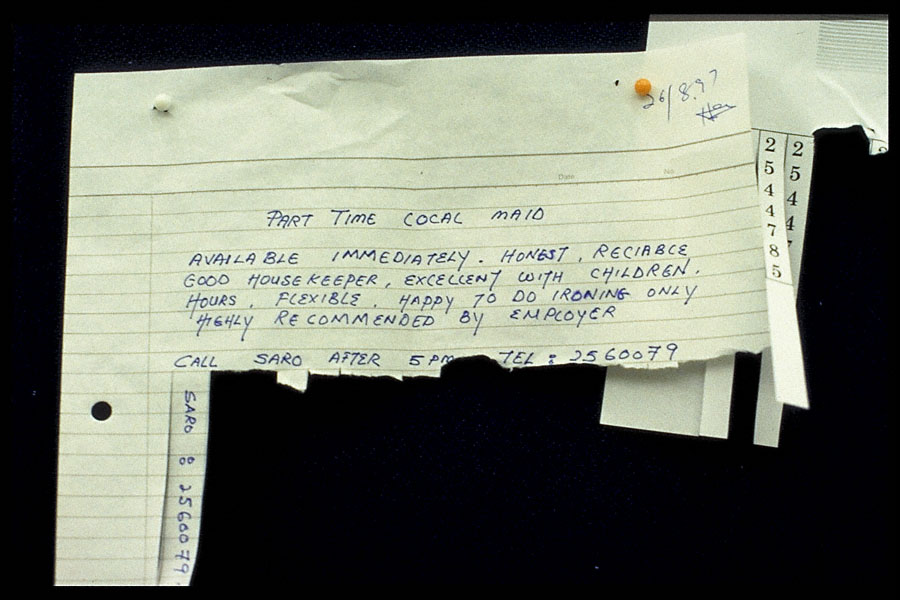 26/8.97
Date
No
PART TIME LOCAL MAID
AVAILABLE IMMEDIATELY. HONEST, RELIABLE
GOOD HOUSEKEEPER, EXCELLENT WITH CHILDREN.
HOURS, FLEXIBLE. HAPPY TO DO IRONING ONLY
HIGHLY RECOMMENDED BY EMPLOYER
CALL SARO AFTER 5PM TEL: 2560079
SARO 8 2560079
2544785
25447
2